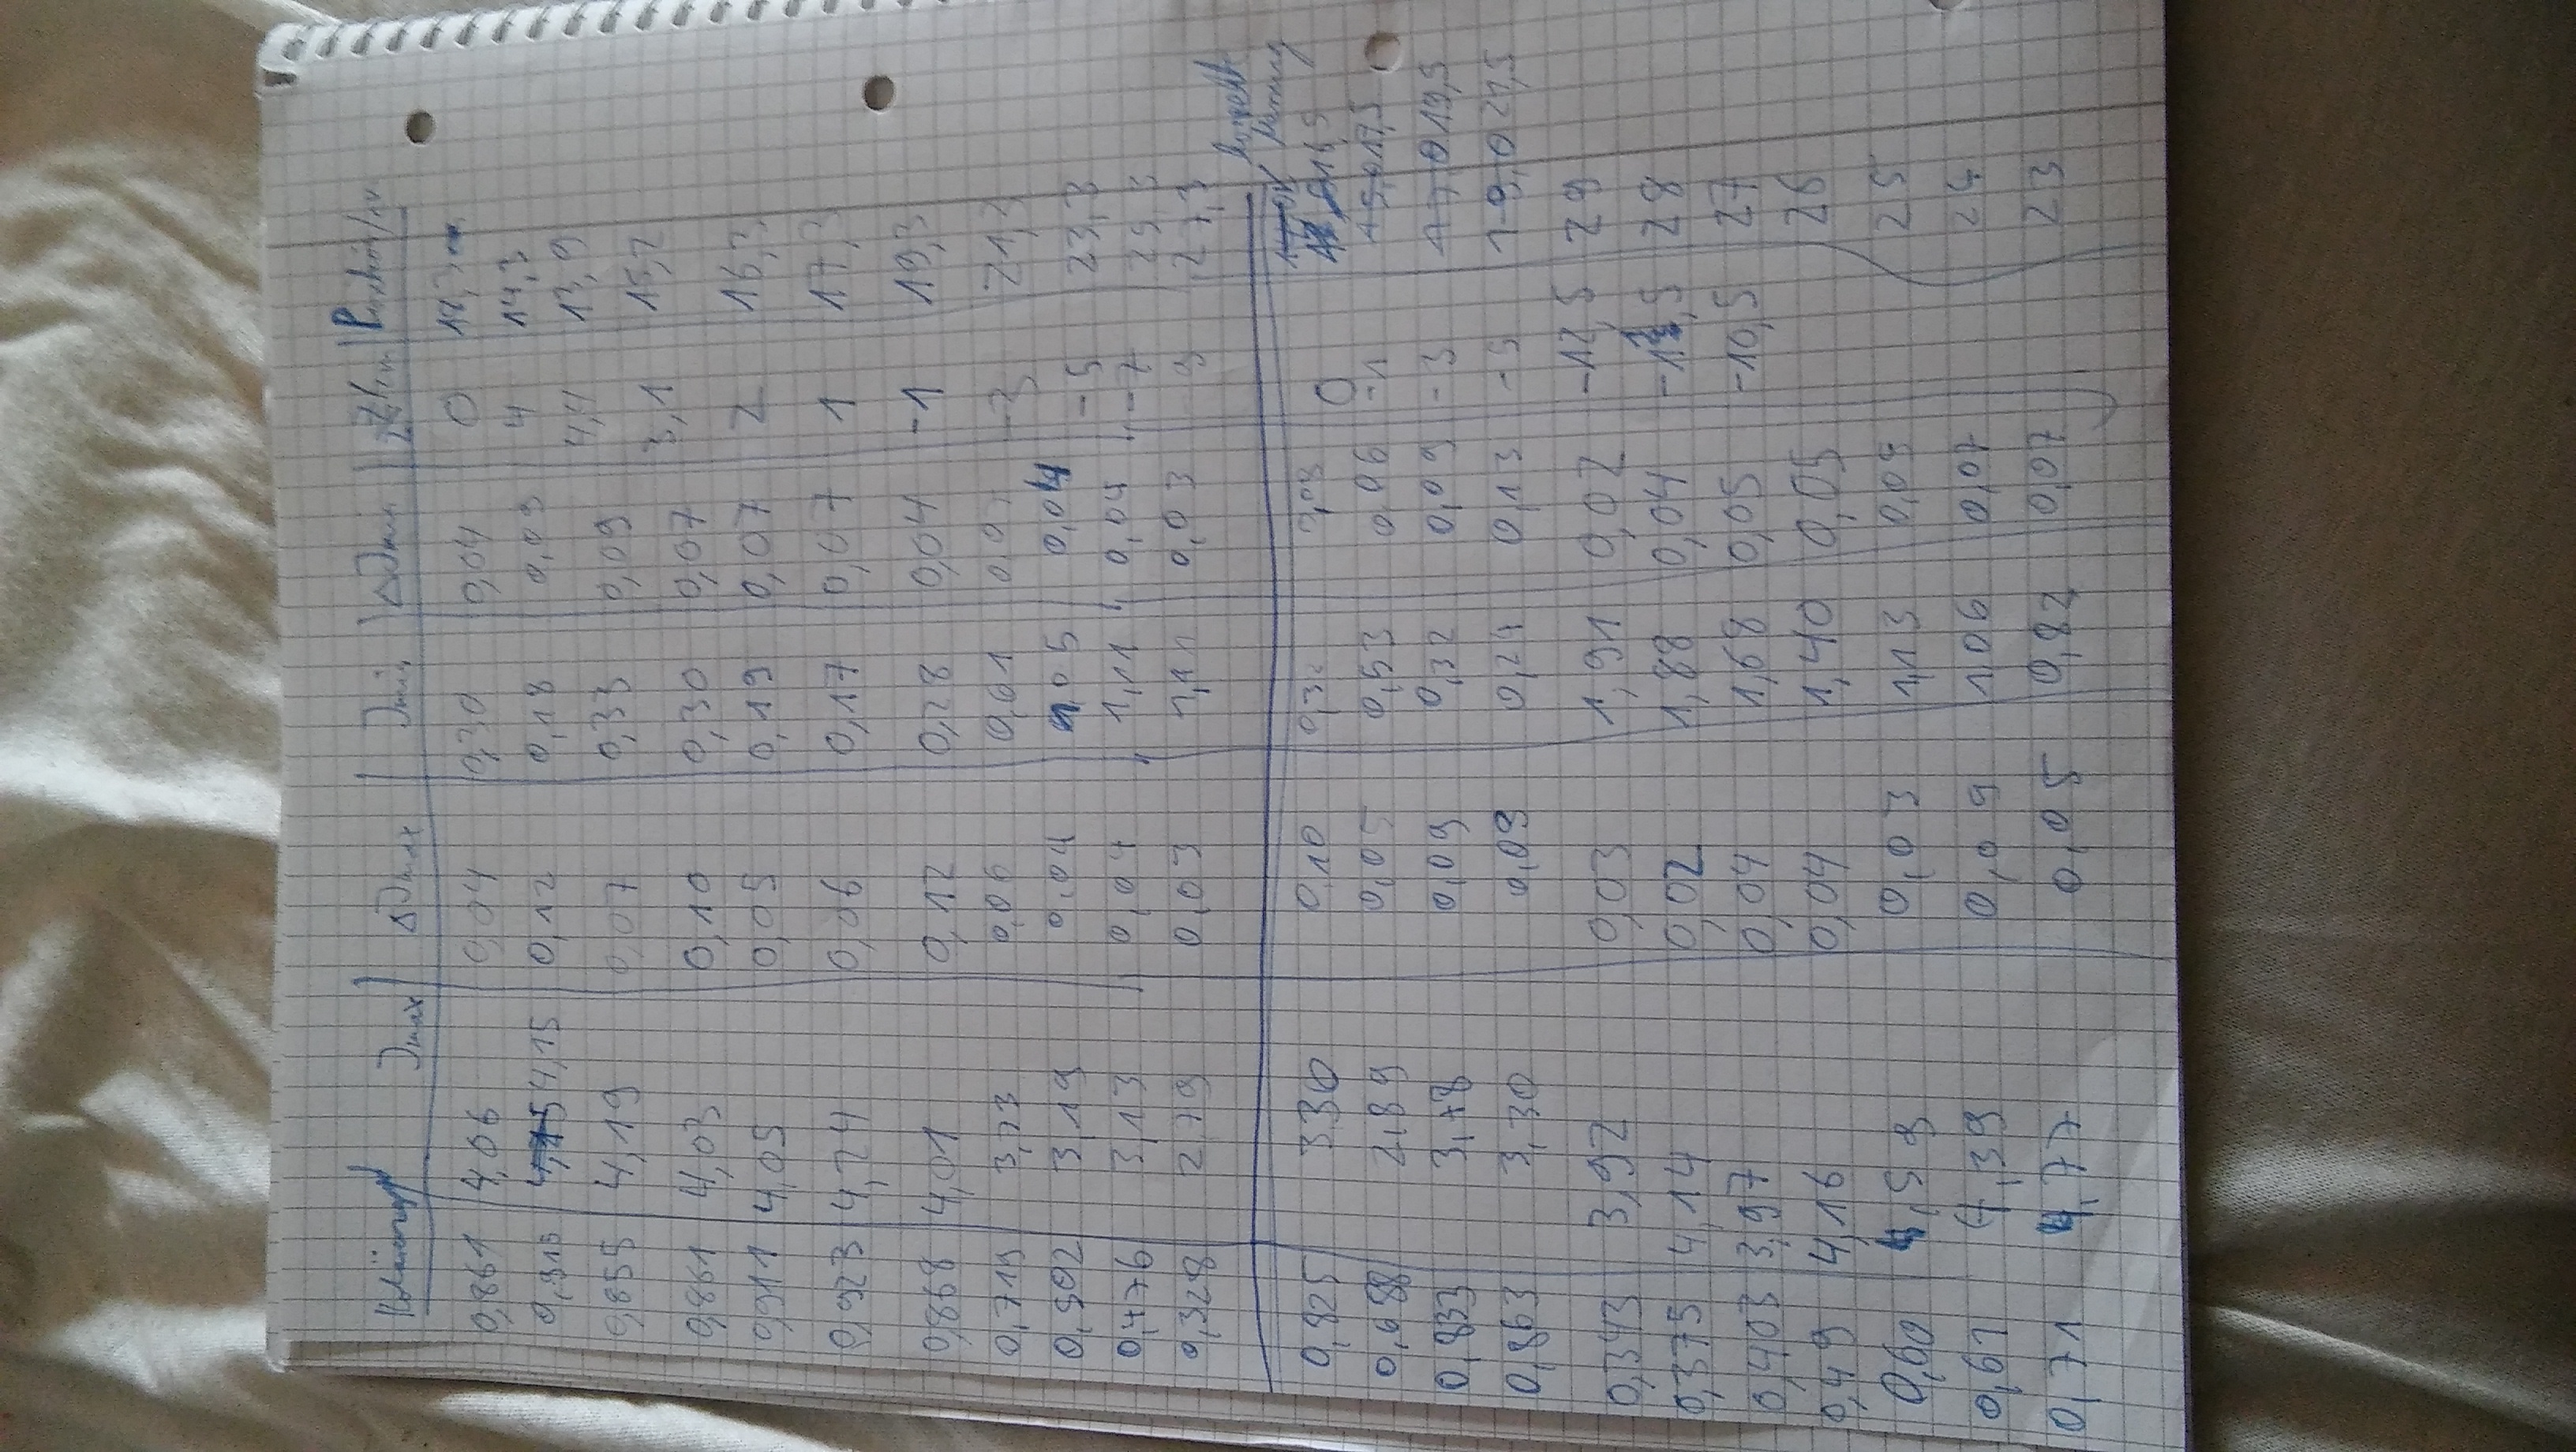 Jmax ΔJmax Jmin ΔJmin Z/cm
0,861 4,06 0,04 0,30 0,04 0 18,3
0,919 4,15 0,12 0,18 0,09 4 14,3
0,855 4,19 0,07 0,33 0,09 4,4 13,9
0,861 4,03 0,10 0,30 0,07 3,1 15,2
0,911 4,05 0,05 0,19 0,07 2 16,3
0,923 4,24 0,06 0,17 0,07 1 17,3
0,868 4,01 0,12 0,28 0,04 -1 19,3
0,719 3,73 0,06 0,61 -3 21,3
0,502 3,19 0,04 1,05 0,04 -5 23,3
0,476 3,13 0,04 1,11 0,04 -7 25,3
0,328 2,79 0,03 1,41 0,03 -9 27,3
0,825 3,36 0,10 0,32 0 16,5
0,688 2,89 0,05 0,53 0,06 -1 17,5
0,833 3,48 0,09 0,32 0,09 -3 19,5
0,863 3,30 0,09 0,24 0,13 -5 21,5
0,343 3,92 0,03 1,91 0,02 -12,5 29
0,375 4,14 0,02 1,88 0,04 -11,5 28
0,403 3,97 0,04 1,68 0,05 -10,5 27
0,49 4,16 0,04 1,40 0,05 26
0,60 4,58 0,03 1,13 25
0,61 4,39 0,09 1,06 0,07 24
0,71 4,77 0,05 0,82 0,07 23